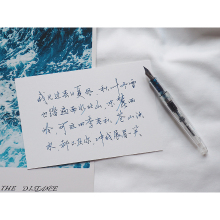 我见过春日夏风 秋叶冬雪
也踏遍南水北山 东麓西
岭 可这四季春秋 苍山泱
水 都不及你 冲我展眉一笑
THE DISTANCE